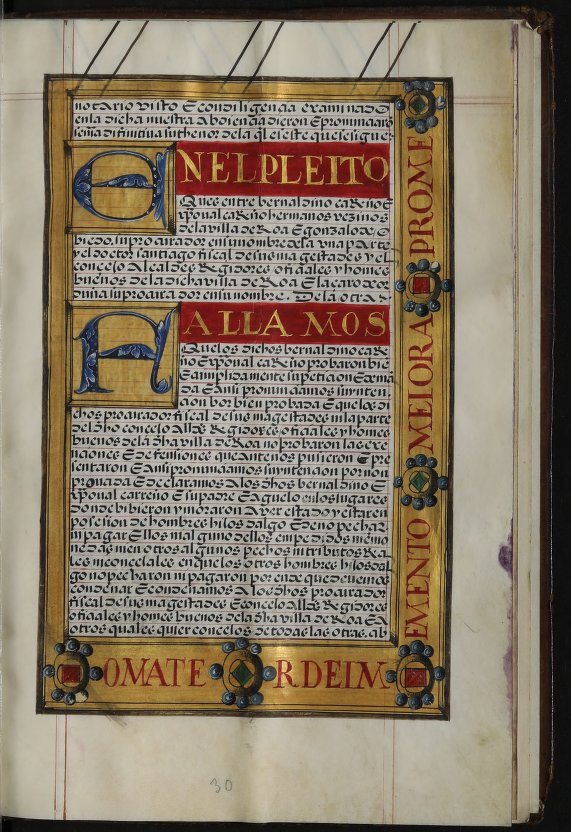 notario visto E con diligencia examinado
en la dicha nuestra Abdiencia dieron E pronunciaro
senᵃ difinitiva su thenor de la ql es este que se sigue
ENEL PLEITO
Que es entre bernaldino carᵉño E
xpoual carᵉño hermanos vezinos
de la villa de Roa E gonzalo de o
biedo, su procurador en su nombre de la vna parte
el doctor santiago fiscal de sus magestades y el
concejo Alcaldes Regidores oficiales y honbres
buenos de la dicha villa de Roa E lazaro de ce
su procurador en su nombre. De la otra.
FALLAMOS
Que los dichos bernaldino carᵉ
ño E xpoual carᵉño probaron bie
E conplidamente su peticion E dema
da E ansi pronunciamos su inten
cion por bien probada E que los di
chos procurador fiscal de sus magestades ni la parte
del dho concejo Alldᵉs Regidores oficiales y honbres
buenos de la dha villa de Roa no probaron las exce
ciones E defensiones que Ante nos pusieron E pre
sentaron E ansi pronunciamos su intencion por non
provada E declaramos A los dhos bernaldino E
xpoual carreño E su padre E Aguelo en los lugares
donde bibieron y moraron Aver estado y estar en
posesion de hombres hijos dalgo E de no pechar
ni pagar Ellos ni alguno dellos en pedidos ni mo
nedas ni en otros algunos pechos ni tributos Rea
les ni concejales en que los otros hombres hijos dal
go no pecharon ni pagaron por ende que devemos
condenar E condenamos A los dhos procurador
fiscal de sus magestades E concejo Alldᵉs Regidores
oficiales y honbres buenos de la dha villa de Roa E a
otros qualesquier concejos de todas las otras al
OMATE R DEI M
EMENTO MEI ORA PRO ME
30